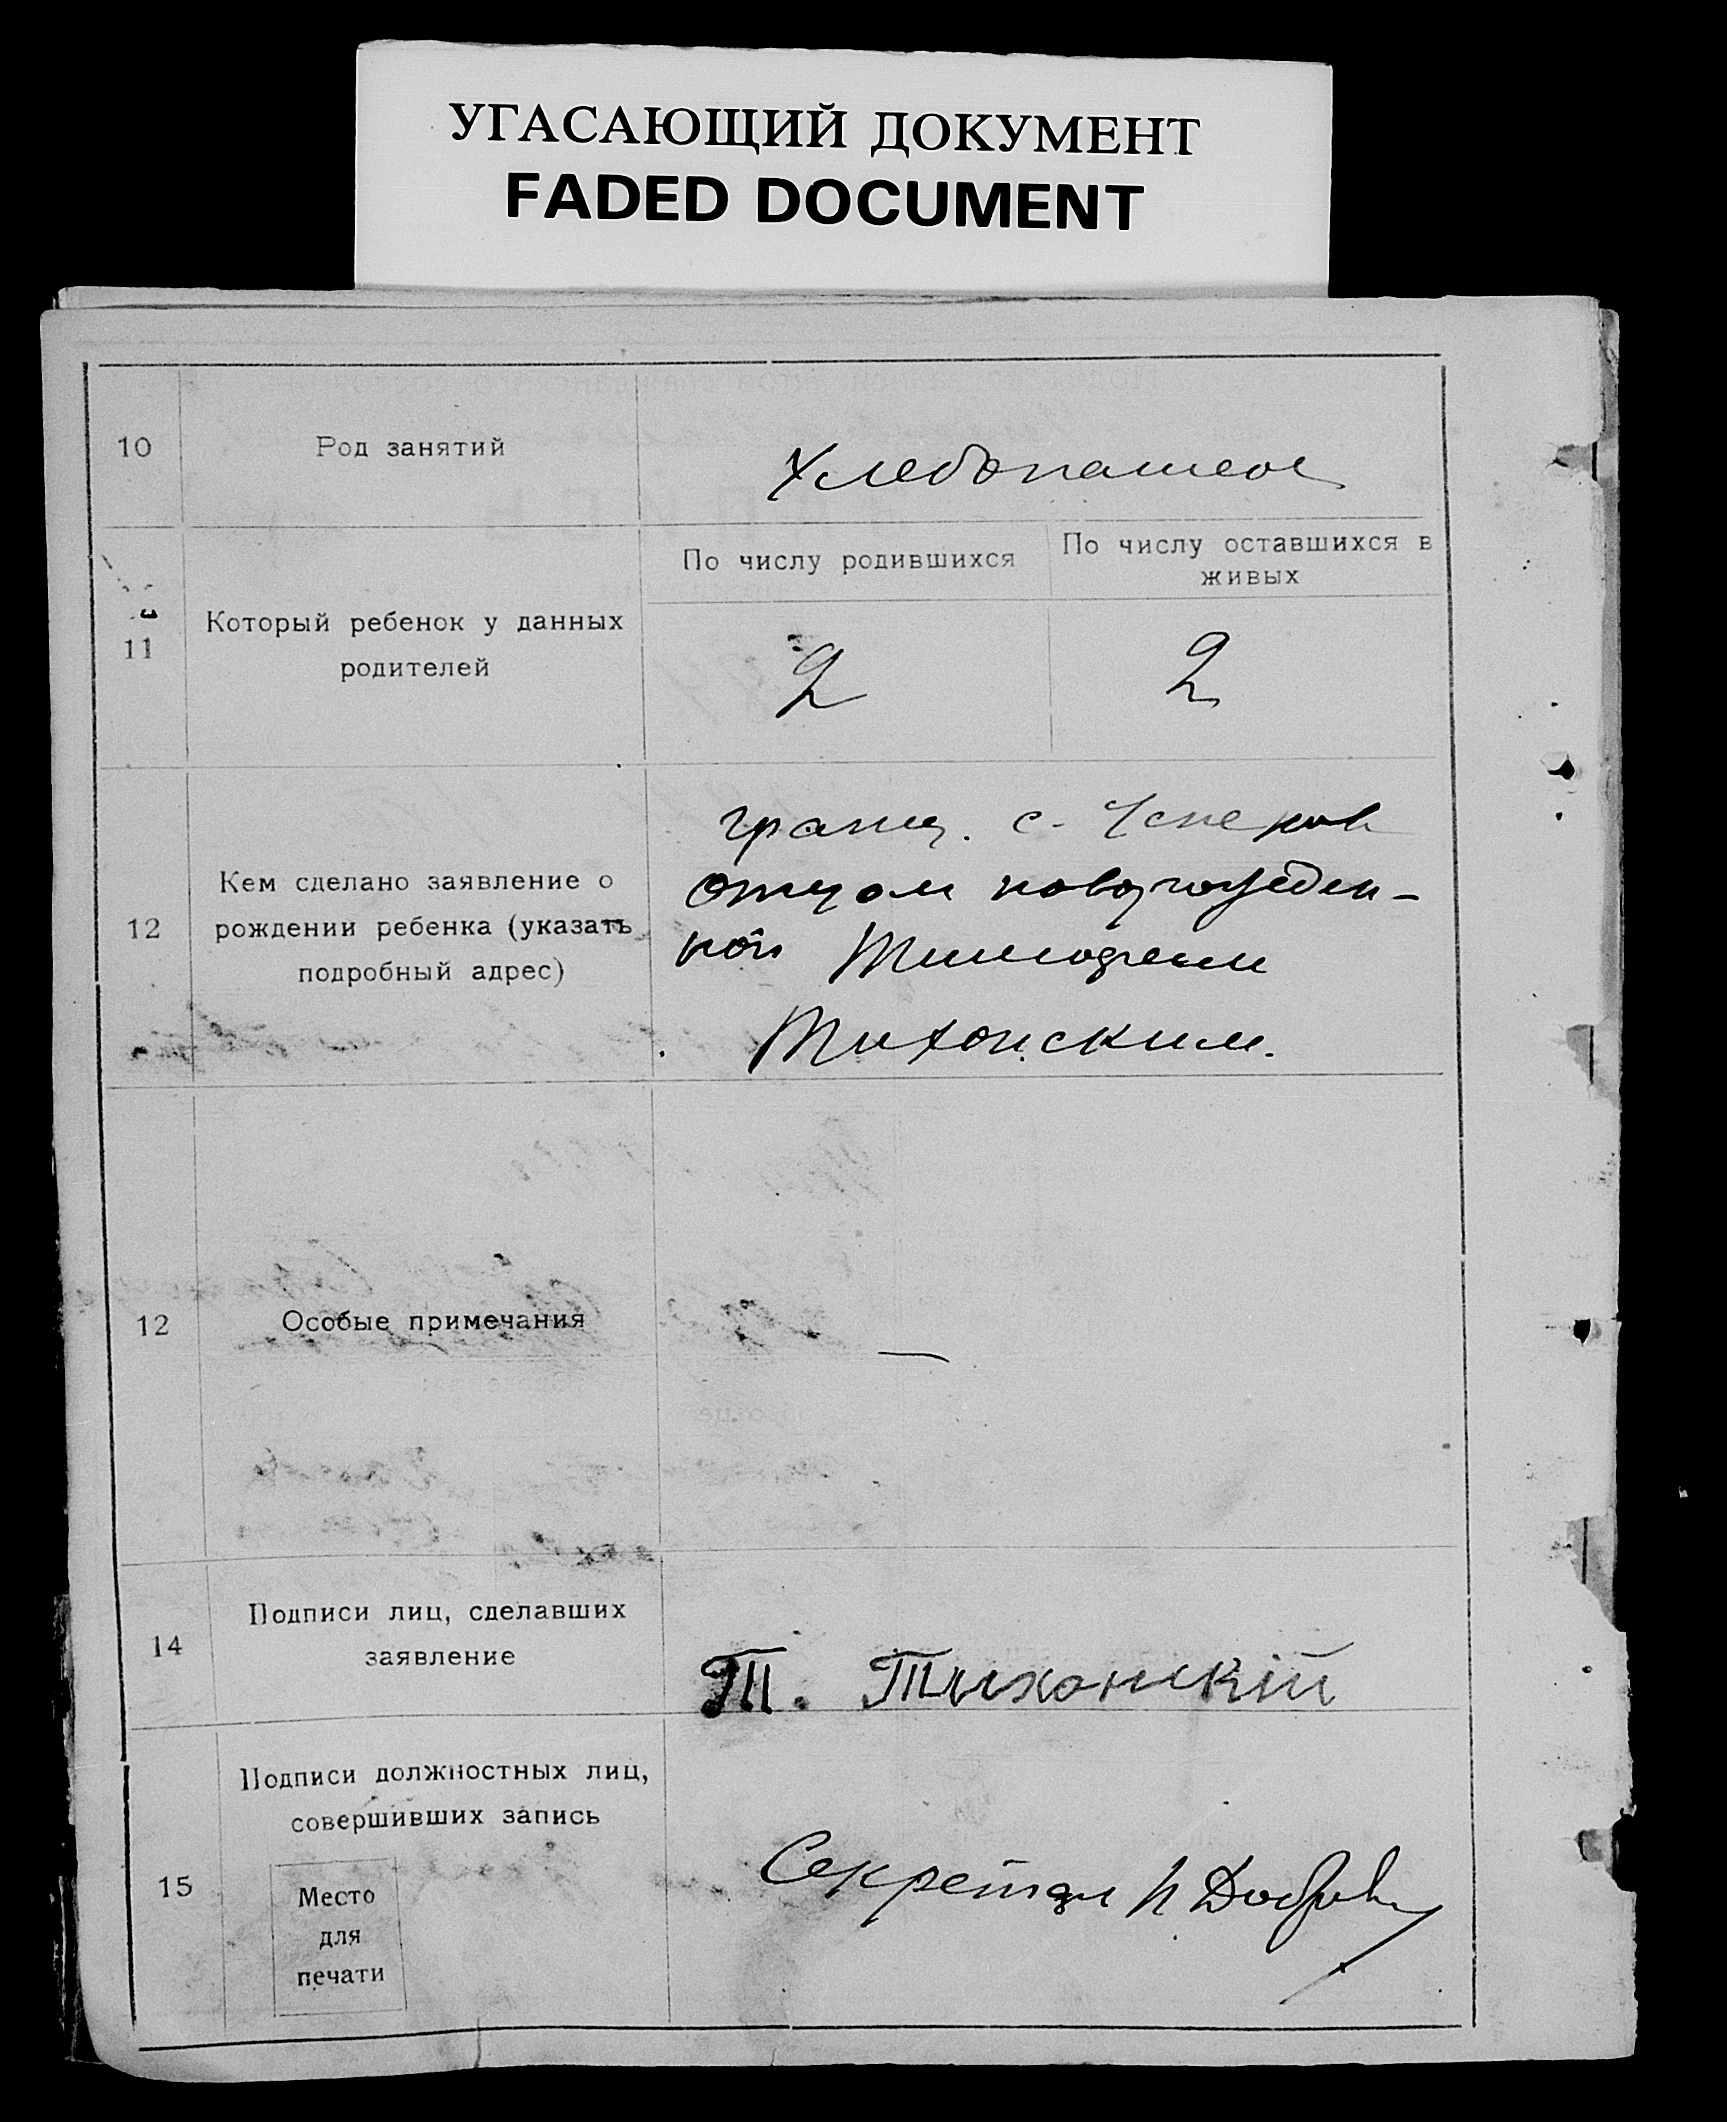 УГАСАЮЩИЙ ДОКУМЕНТ
FADED DOCUMENT
10
Род занятий
Хлебопашест
11
Который ребенок у данных
родителей
По числу родившихся
По числу оставшихся в
живых
2
2
12
Кем сделано заявление о
рождении ребенка (указать
подробный адрес)
гражд. с.
отцом новорожден-
ной Тимофеем
Тихонским.
12
Особые примечания
—
14
Подписи лиц, сделавших
заявление
Т. Тихонский
15
Подписи должностных лиц,
совершивших запись
Место
для
печати
Секретарь